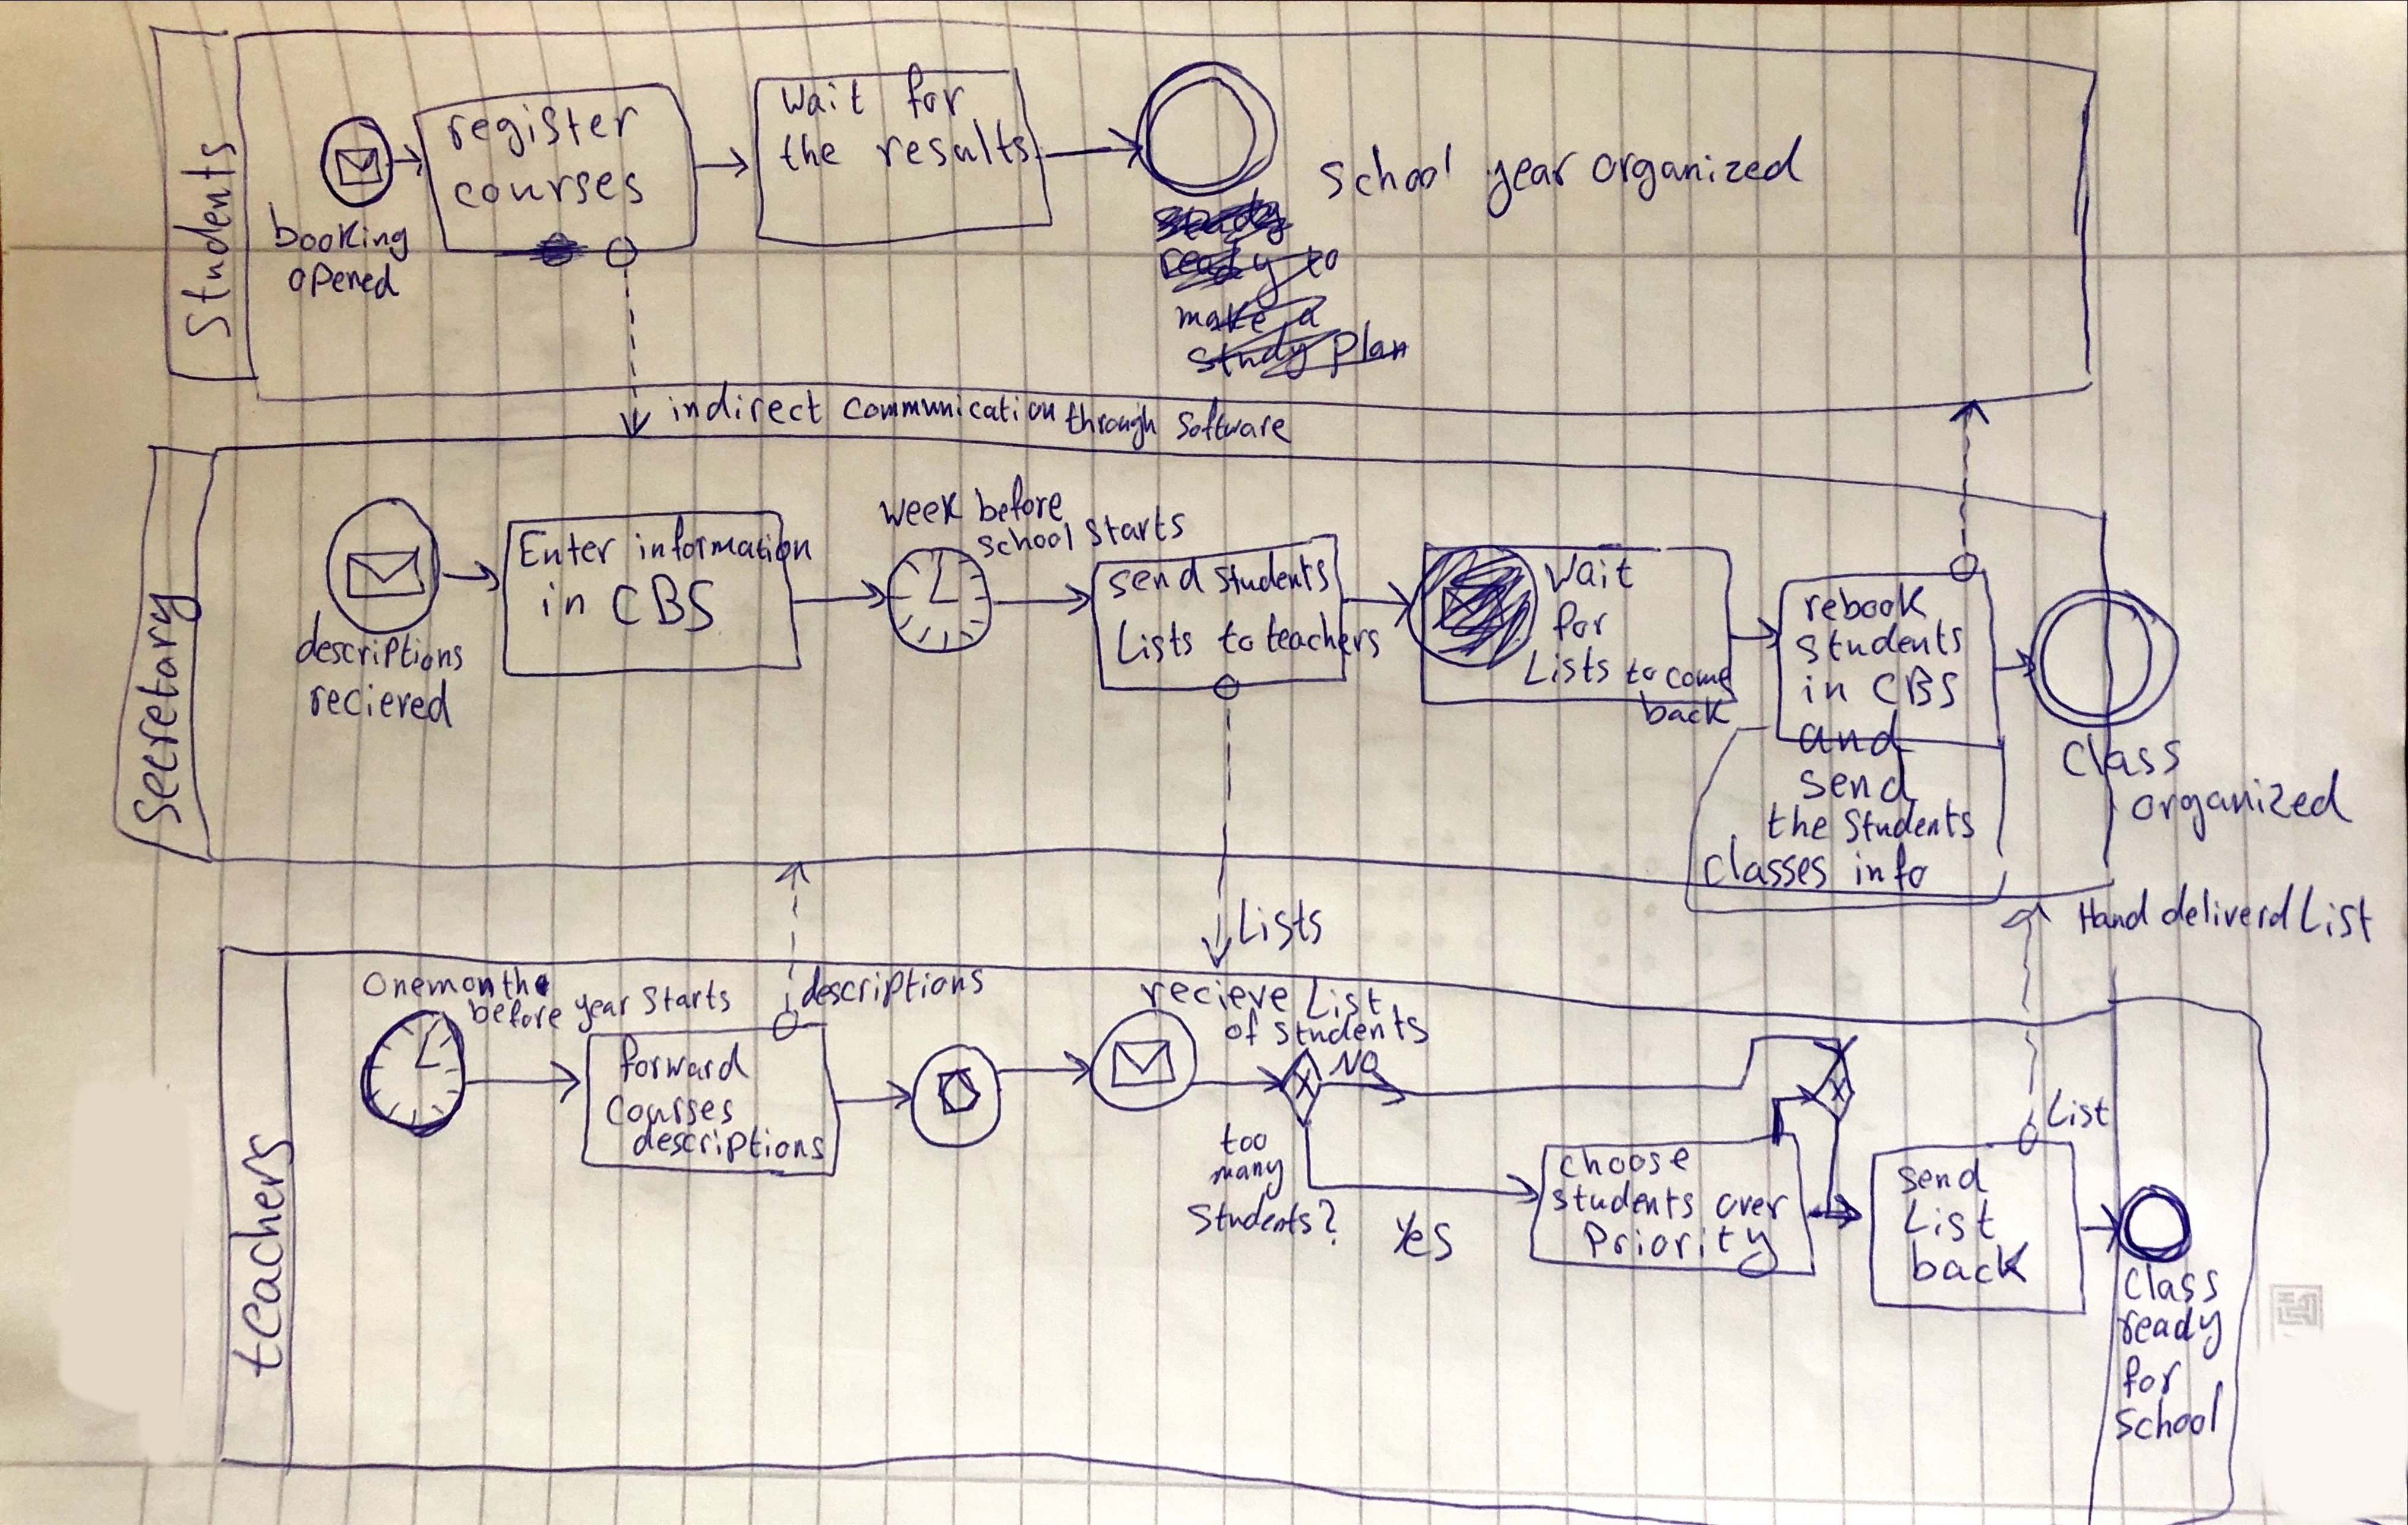 Students
booking
opened
register
courses
Wait for
the results
School year organized
ready to
make a
study plan
indirect communication through Software
Secretary
descriptions
recieved
Enter information
in CBS
week before
school starts
send students
Lists to teachers
Wait
for
Lists to come
back
rebook
students
in CBS
and
send
the students
classes info
Class
organized
Hand deliverd List
Lists
teachers
One month
before year starts
forward
courses
descriptions
descriptions
recieve List
of students
NO
too
many
students?
Yes
choose
students over
Priority
List
send
List
back
Class
ready
for
School